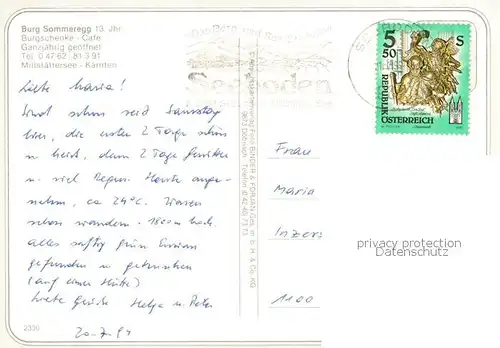 Burg Sommeregg 13. Jhr.
Burgschenke - Cafe
Ganzjährig geöffnet
Tel. 0 47 62 - 81 3 91
Millstättersee - Kärnten
Liebe Maria!
Sind schon seit Samstag
hier, die ersten 2 Tage schön
u. heiß, dann 2 Tage Gewitter
u. viel Regen. Heute ange-
nehm, ca 24°C. Waren
schon wandern. 1800 m hoch.
Alles saftig grün Enzian
gefunden u. getrunken
(auf einer Hütte)
Liebe Grüße Helga u. Peter
20-7-94
2330
5 50 S
REPUBLIK
ÖSTERREICH
Frau
Maria
Inzers
1100
privacy protected
Datenschutz